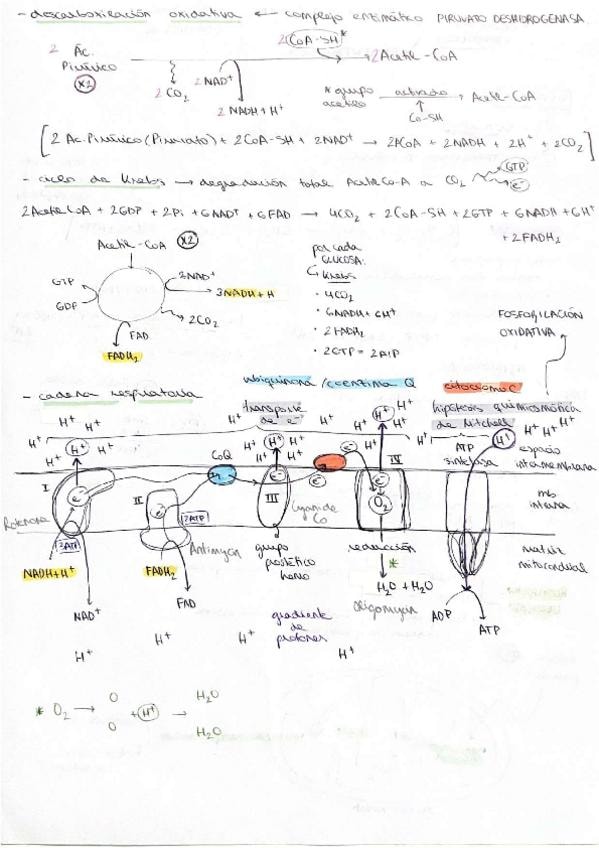 - descarboxilación oxidativa ← complejo enzimático PIRUVATO DESHIDROGENASA.
2 Ac. Pirúvico (x2) → 2 Acetil-CoA
2 CoA-SH*
2 CO₂
2 NAD⁺
2 NADH + H⁺
* grupo acetilo activado → Acetil-CoA
↑
Co-SH
[2 Ac. Pirúvico (Piruvato) + 2CoA-SH + 2NAD⁺ → 2ACoA + 2NADH + 2H⁺ + 2CO₂]
- ciclo de Krebs → degradación total Acetil Co-A a CO₂
GTP
e⁻
2 Acetil CoA + 2GDP + 2Pi + 6NAD⁺ + 6FAD → 4CO₂ + 2CoA-SH + 2GTP + 6NADH + 6H⁺
+ 2FADH₂
Acetil-CoA (x2)
GTP
GDP
3NAD⁺
3NADH + H
2CO₂
FAD
FADH₂
por cada
GLUCOSA:
Krebs
• 4CO₂
• 6NADH + 6H⁺
• 2FADH₂
• 2GTP = 2ATP
FOSFORILACIÓN
OXIDATIVA
- cadena respiratoria
ubiquinona / coenzima Q
citocromo C
transporte
de e⁻
hipótesis quimiosmótica
de Mitchell
H⁺ H⁺ H⁺ H⁺ H⁺ H⁺ H⁺ H⁺
H⁺ H⁺ H⁺ H⁺ H⁺ H⁺
H⁺ H⁺ H⁺ H⁺ H⁺ H⁺
ATP
sintetasa
espacio
intermembrana
I
CoQ
IV
e⁻ II e⁻ III e⁻ e⁻ e⁻ e⁻
O₂
mb
interna
Rotenona
3ATP
2ATP
Antimycin
Cyanyde
Co
NADH+H⁺
FADH₂
grupo
prostético
hemo
reducción
*
matriz
mitocondrial
H₂O + H₂O
NAD⁺
FAD
Oligomycin
ADP
ATP
gradiente
de
protones
H⁺ H⁺ H⁺
H⁺ H⁺
* O₂ → O O + H⁺ → H₂O H₂O